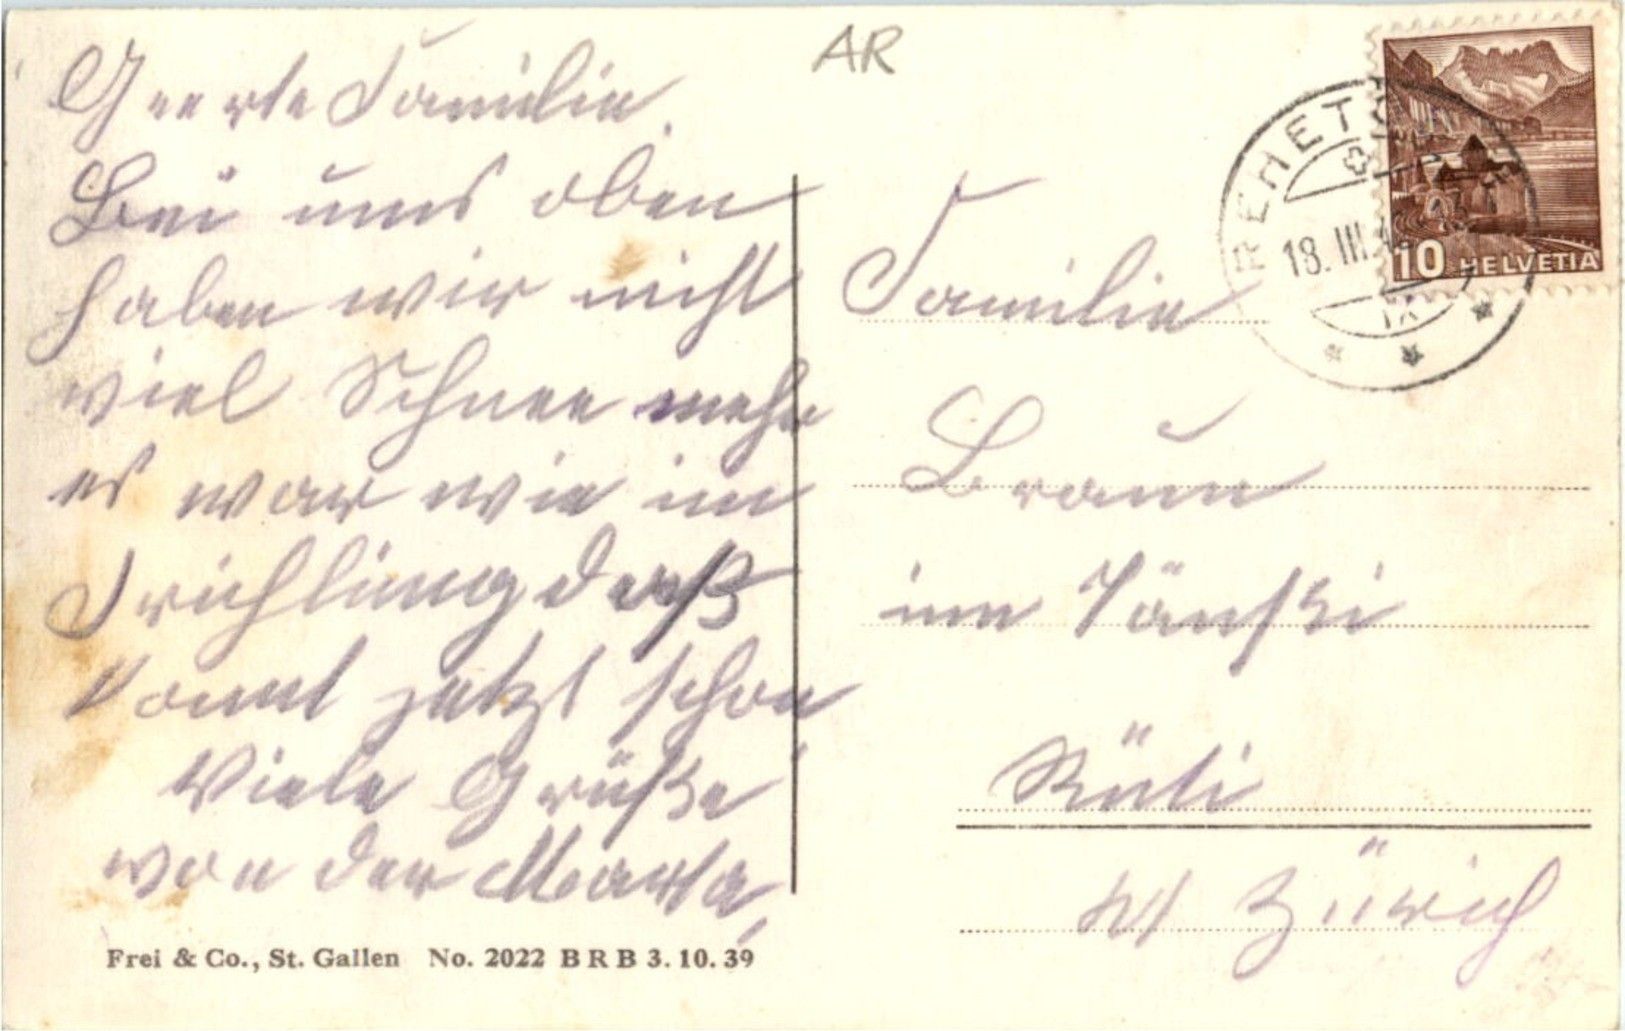 AR
Geerte Familie.
Bei uns oben
haben wir nicht
viel Schnee mehr
es war wie im
Frichling
kount jetzt schon
Viele Grüße
von der Marta,
Frei & Co., St. Gallen No. 2022 B R B 3. 10. 39
REHETOBEL
18. III.
IX
10 HELVETIA
Familie
Braun
im
Rüti
Kt Zürich